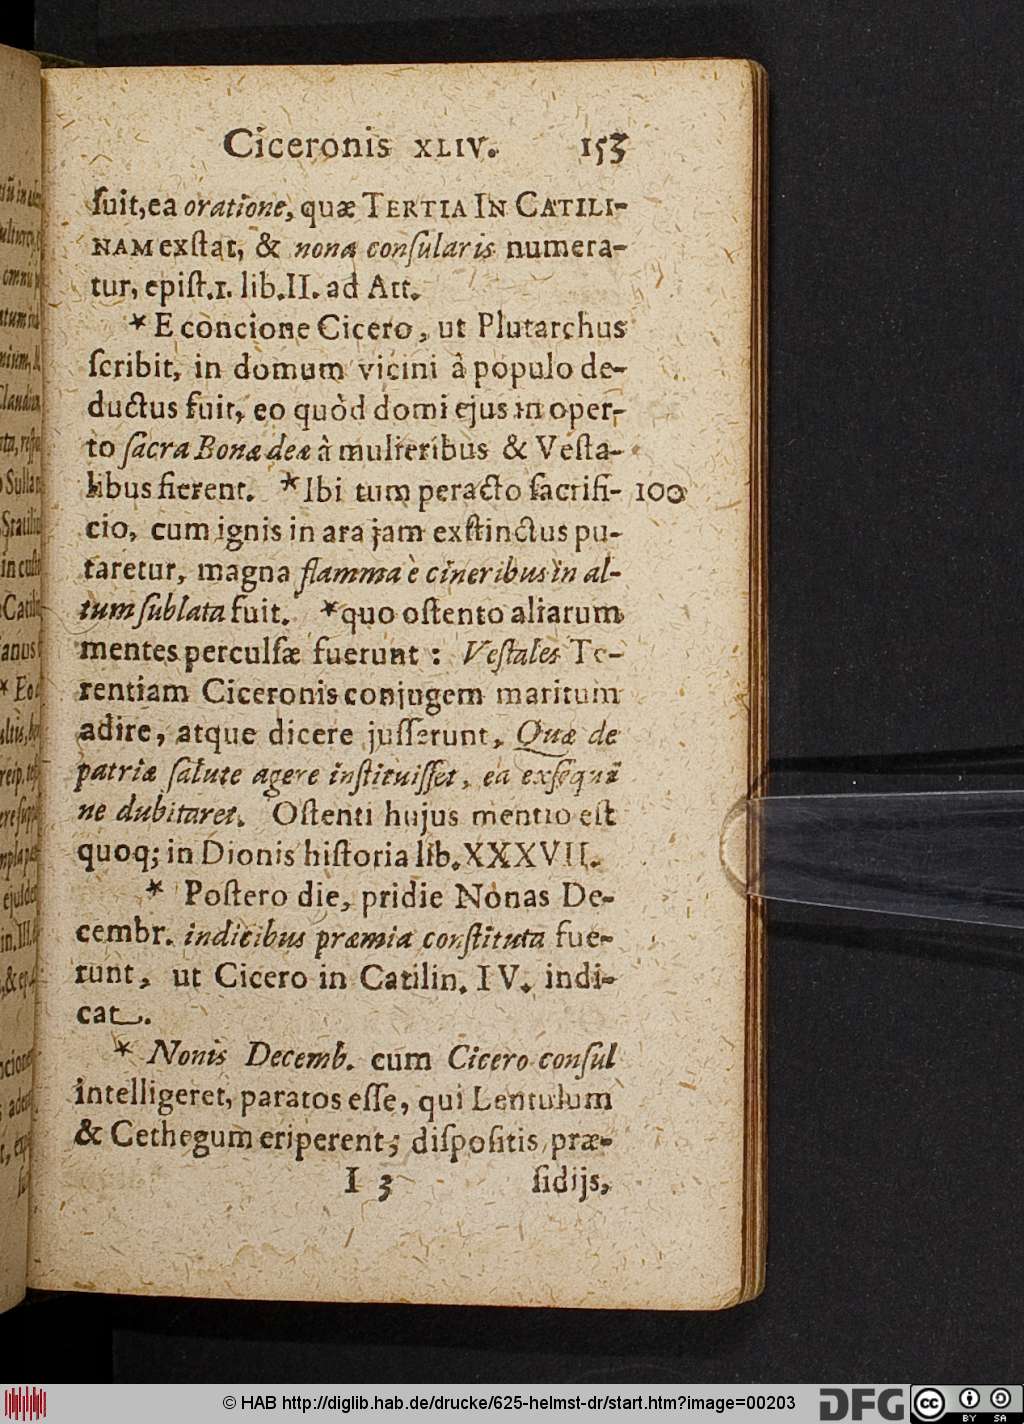 Ciceronis XLIV. 153
ſuit, ea oratione, quæ TERTIA IN CATILI-
NAM exſtat, & nona conſularis numera-
tur, epiſt. 1. lib. II. ad Att.
* E concione Cicero, ut Plutarchus
ſcribit, in domum vicini à populo de-
ductus fuit, eo quòd domi ejus in oper-
to ſacra Bonæ deæ à mulieribus & Veſta-
libus fierent. * Ibi tum peracto ſacrifi- 100
cio, cum ignis in ara jam exſtinctus pu-
taretur, magna flamma è cineribus in al-
tum ſublata fuit. * quo oſtento aliarum
mentes perculſæ fuerunt : Veſtales Te-
rentiam Ciceronis conjugem maritum
adire, atque dicere juſſerunt, Quæ de
patriæ ſalute agere inſtituiſſet, ea exſequi
ne dubitaret. Oſtenti hujus mentio eſt
quoq; in Dionis hiſtoria lib. XXXVII.
* Poſtero die, pridie Nonas De-
cembr. indicibus præmia conſtituta fue-
runt, ut Cicero in Catilin. IV. indi-
cat.
* Nonis Decemb. cum Cicero conſul
intelligeret, paratos eſſe, qui Lentulum
& Cethegum eriperent; diſpoſitis præ-
I 3 ſidijs,
© HAB http://diglib.hab.de/drucke/625-helmst-dr/start.htm?image=00203
DFG
cc
BY SA